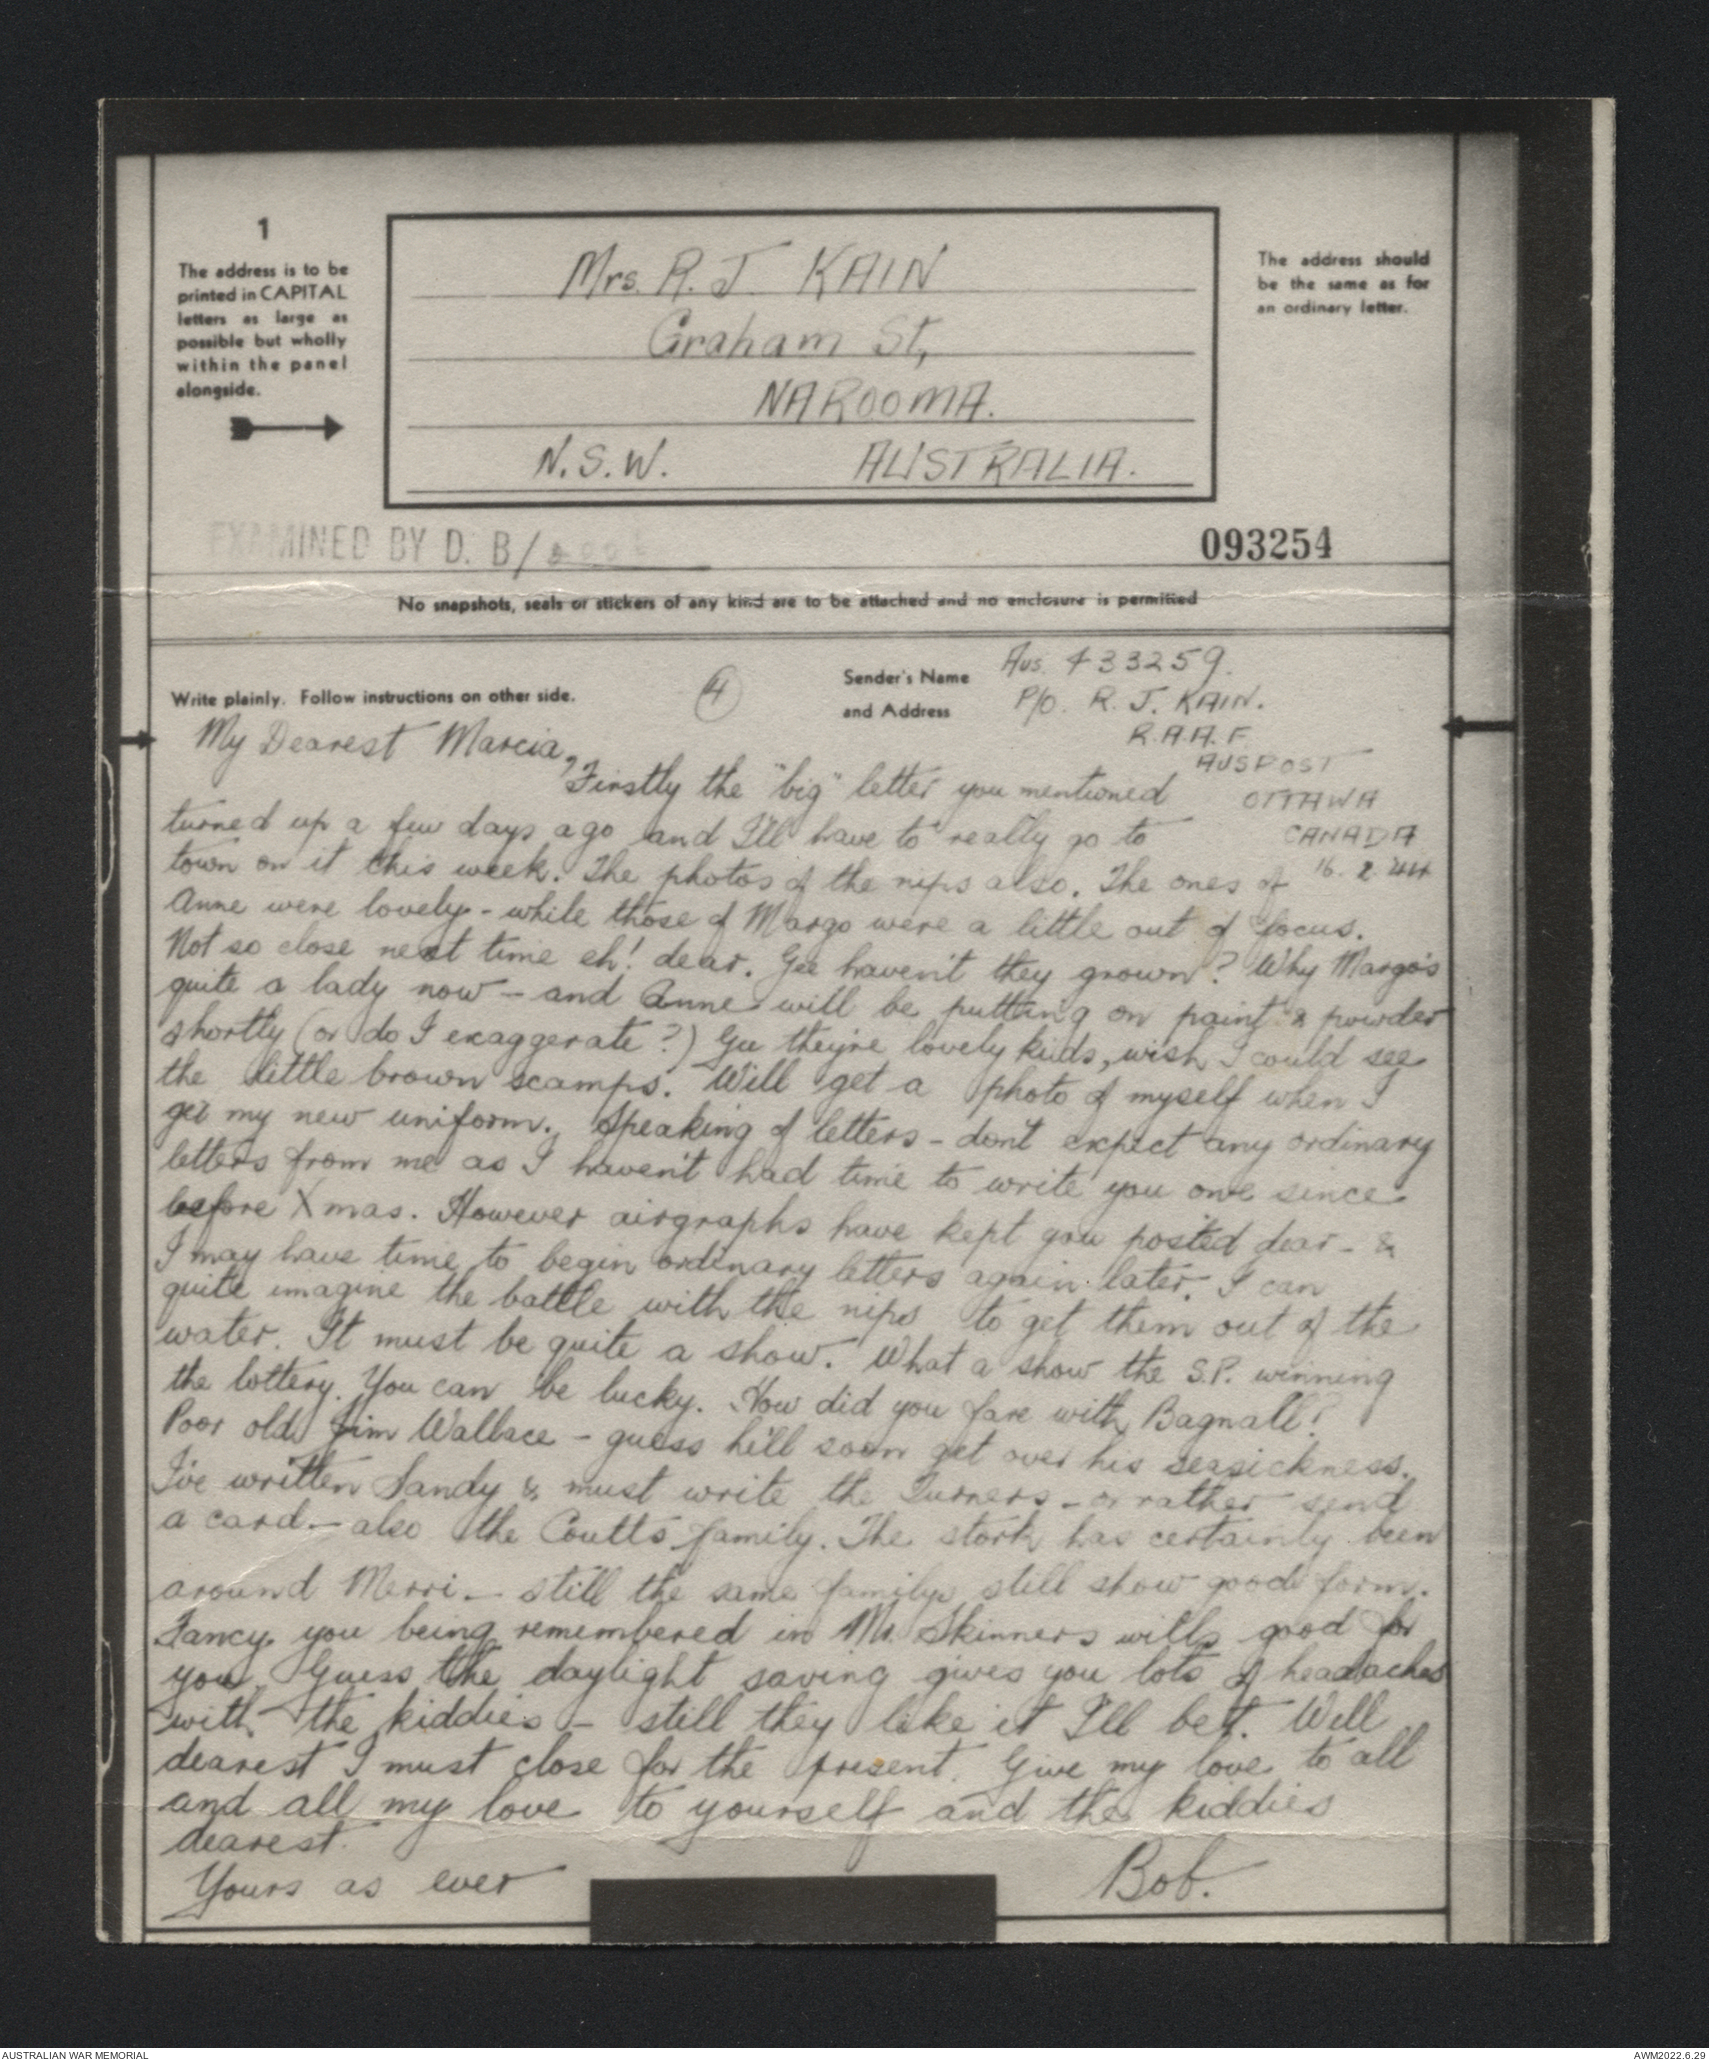 1
The address is to be
printed in CAPITAL
letters as large as
possible but wholly
within the panel
alongside.
Mrs. R. J. KAIN
Graham St,
NAROOMA.
N.S.W. AUSTRALIA.
The address should
be the same as for
an ordinary letter.
EXAMINED BY D. B/
093254
No snapshots, seals or stickers of any kind are to be attached and no enclosure is permitted
Write plainly. Follow instructions on other side.
4
Sender's Name
and Address
Aus. 433259.
P/O. R. J. KAIN.
R.A.A.F
AUSPOST
OTTAWA
CANADA
16. 2. 44
My Dearest Marcia,
Firstly the "big" letter you mentioned
turned up a few days ago and I'll have to really go to
town on it this week. The photos of the nips also. The ones of
Anne were lovely - while those of Margo were a little out of focus.
Not so close next time eh! dear. Gee haven't they grown? Why Margo's
quite a lady now - and Anne will be putting on paint & powder
shortly (or do I exaggerate?) Gee they're lovely kids, wish I could see
the little brown scamps. Will get a photo of myself when I
get my new uniform. Speaking of letters - don't expect any ordinary
letters from me as I haven't had time to write you one since
before Xmas. However airgraphs have kept you posted dear - &
I may have time to begin ordinary letters again later. I can
quite imagine the battle with the nips to get them out of the
water. It must be quite a show. What a show the S.P. winning
the lottery. You can be lucky. How did you fare with Bagnall?
Poor old Jim Wallace - guess he'll soon get over his seasickness.
I've written Sandy & must write the Turners - or rather send
a card - also the Coutts family. The stork has certainly been
around Merri - still the same familys still show good form.
Fancy you being remembered in Mr. Skinners wills good for
you. Guess the daylight saving gives you lots of headaches
with the kiddies - still they like it I'll bet. Well
dearest I must close for the present. Give my love to all
and all my love to yourself and the kiddies
dearest.
Yours as ever
Bob.
AUSTRALIAN WAR MEMORIAL
AWM2022.6.29